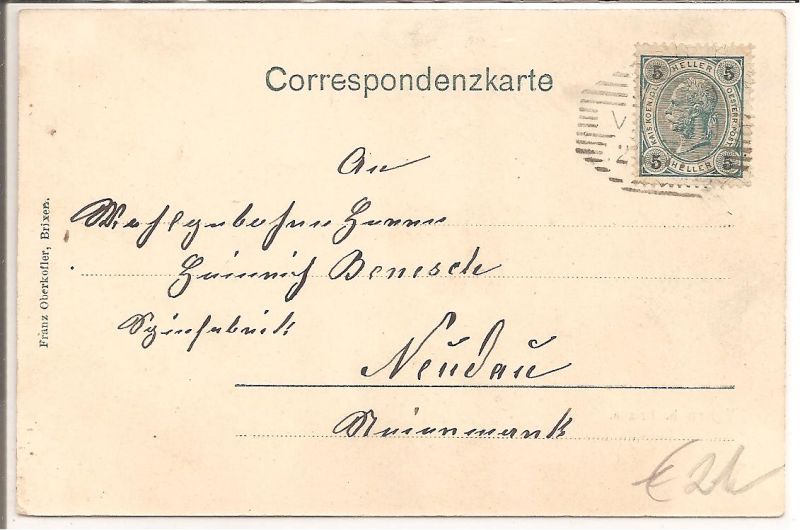 Correspondenzkarte
5 HELLER 5
KAIS. KOENIGL.
OESTERR. POST.
5 HELLER 5
An
Wohlgeboren Herrn
Heinrich Benesch
Spinfabrick
Neudau
Steiermark
Franz Oberkofler, Brixen.